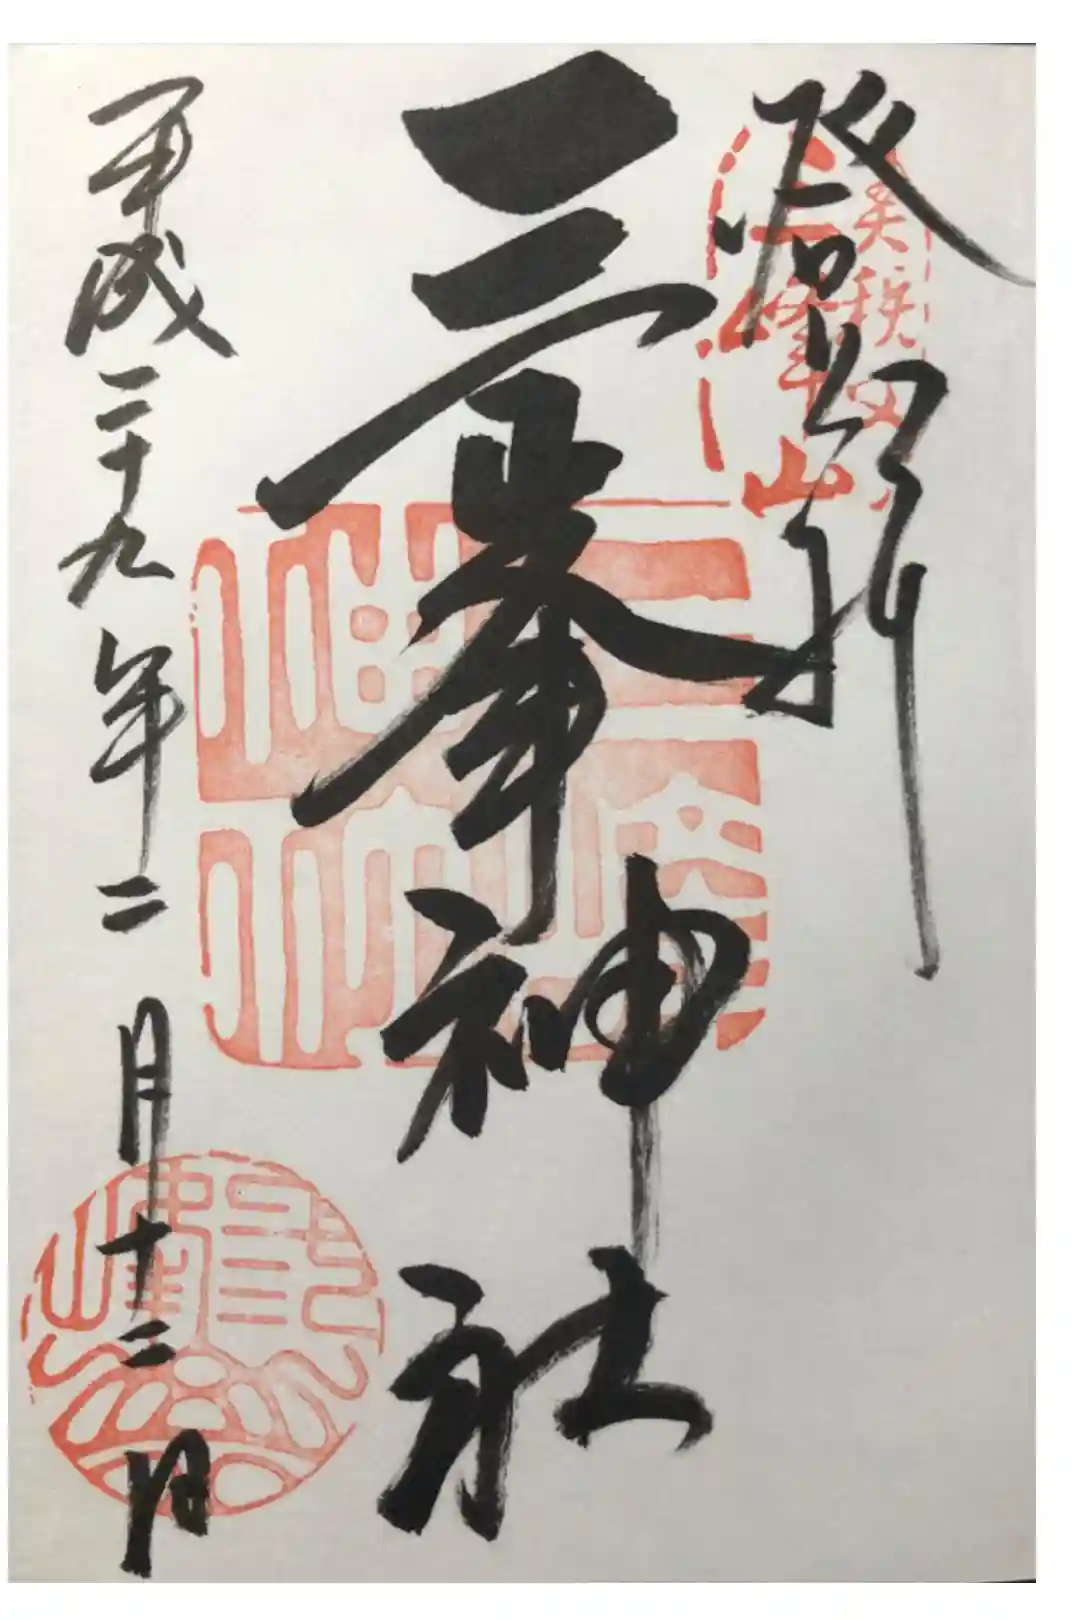 登拝
三峯神社
平成二十九年二月十二日
奥秩父
三峰山
三峰神社